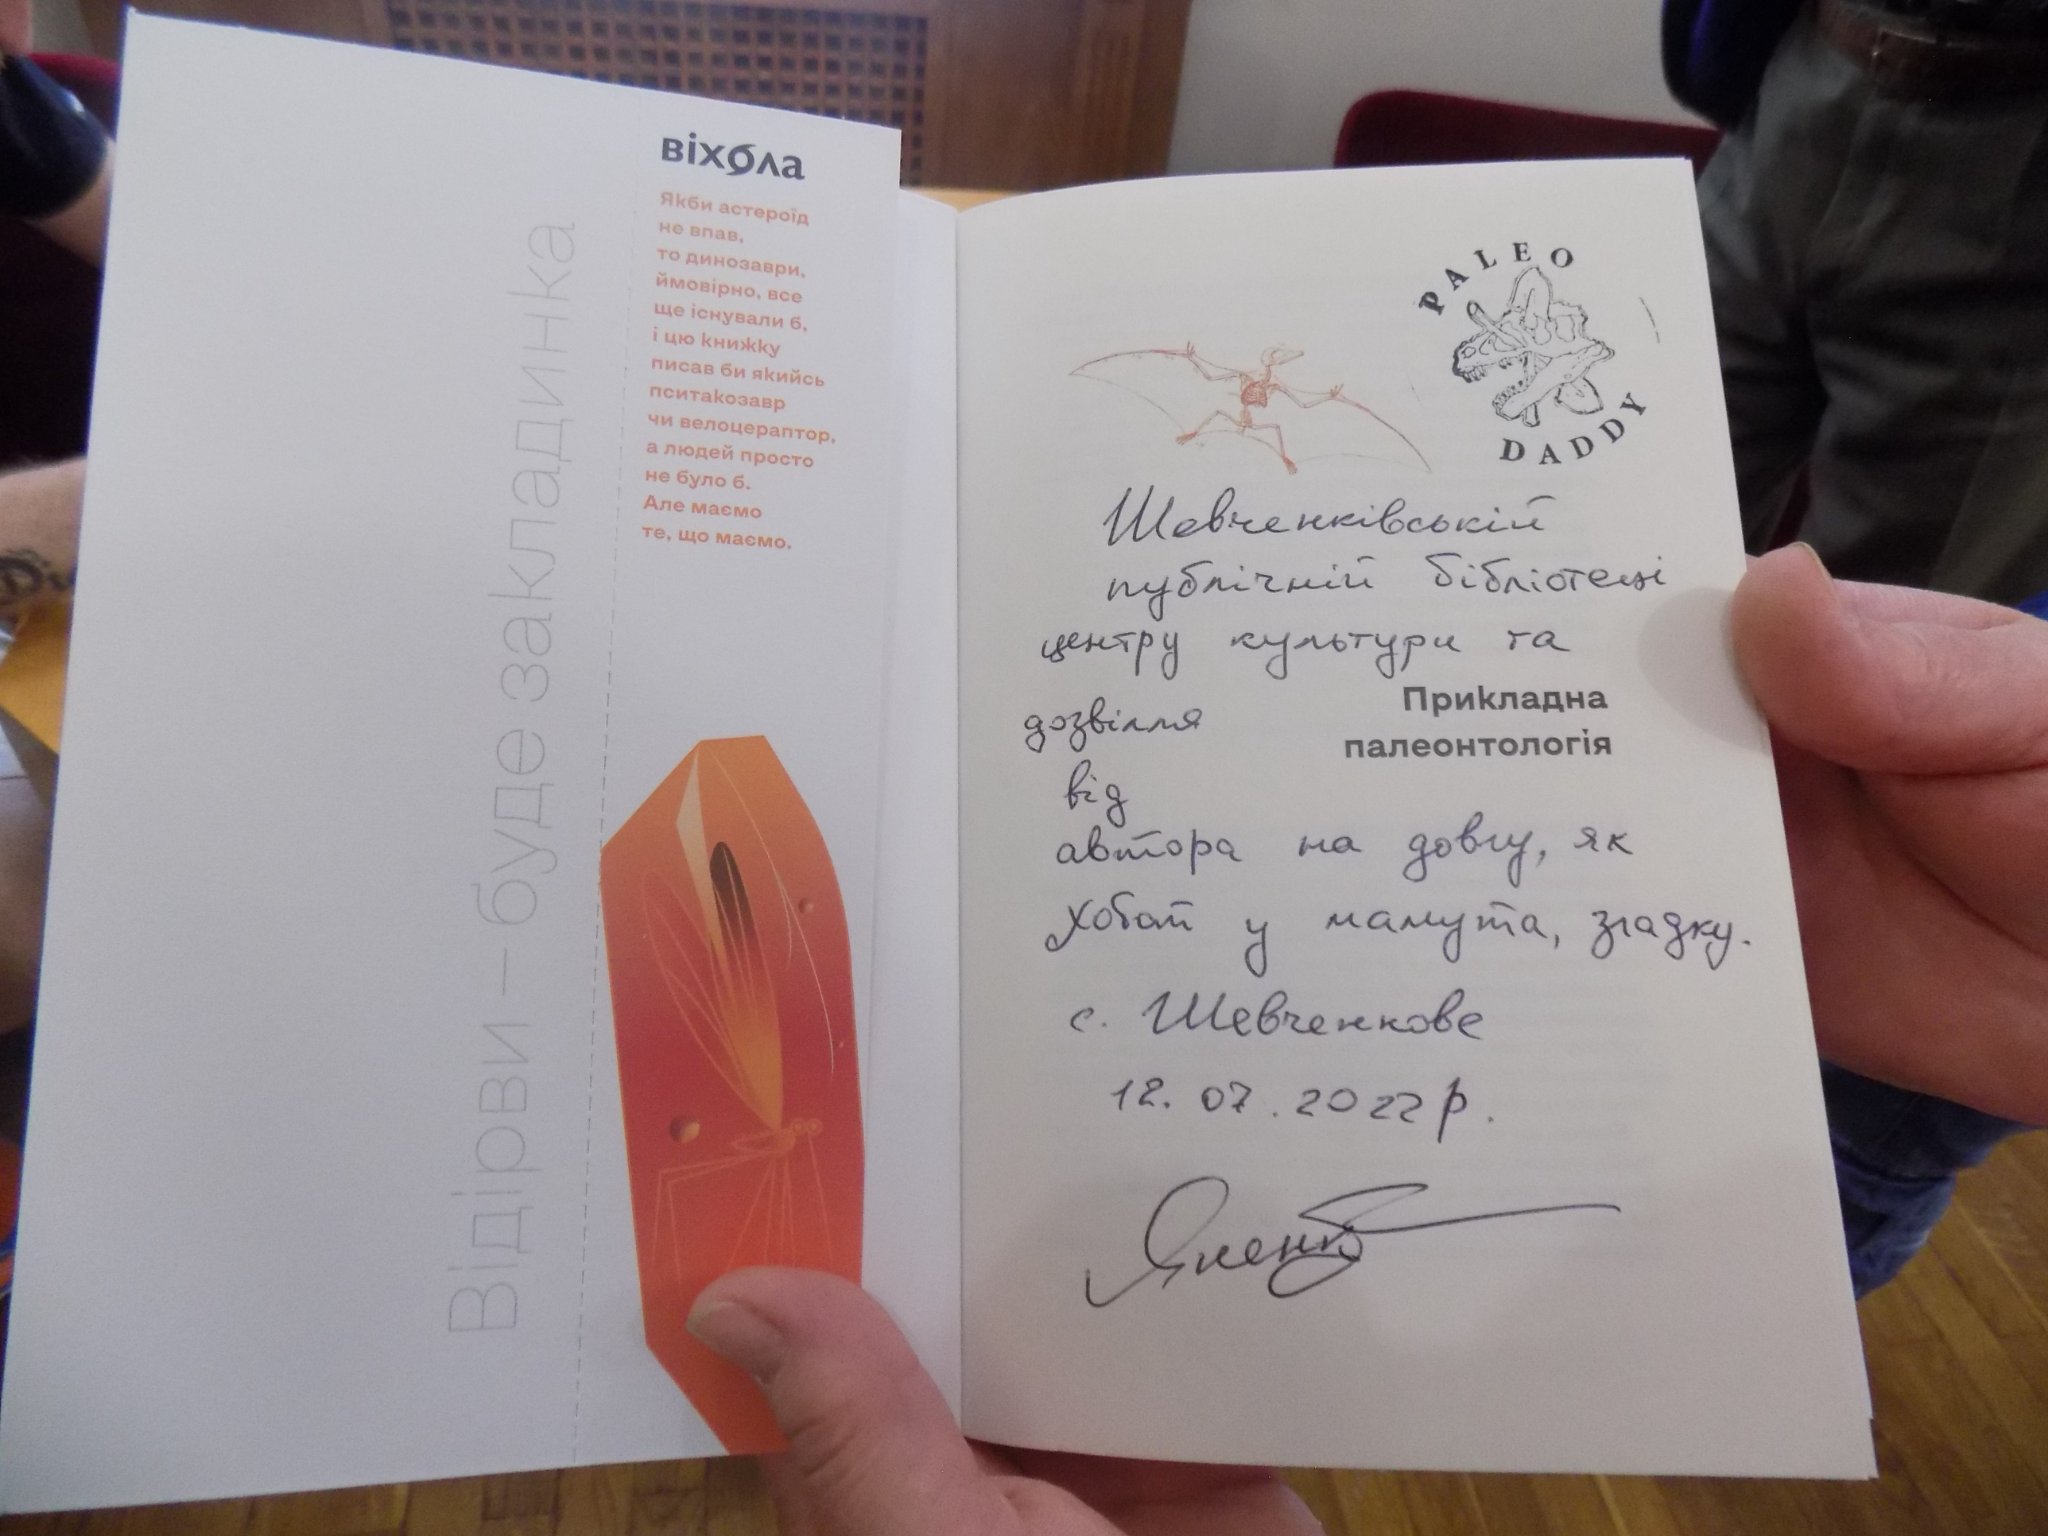 Відірви — буде закладинка
віхола
Якби астероїд
не впав,
то динозаври,
ймовірно, все
ще існували б,
і цю книжку
писав би якийсь
пситакозавр
чи велоцераптор,
а людей просто
не було б.
Але маємо
те, що маємо.
PALEO
DADDY
Шевченківській
публічній бібліотеці
центру культури та
Прикладна
дозвілля
палеонтологія
від
автора на довгу, як
хобот у мамута, згадку.
с. Шевченкове
12.07.2022 р.